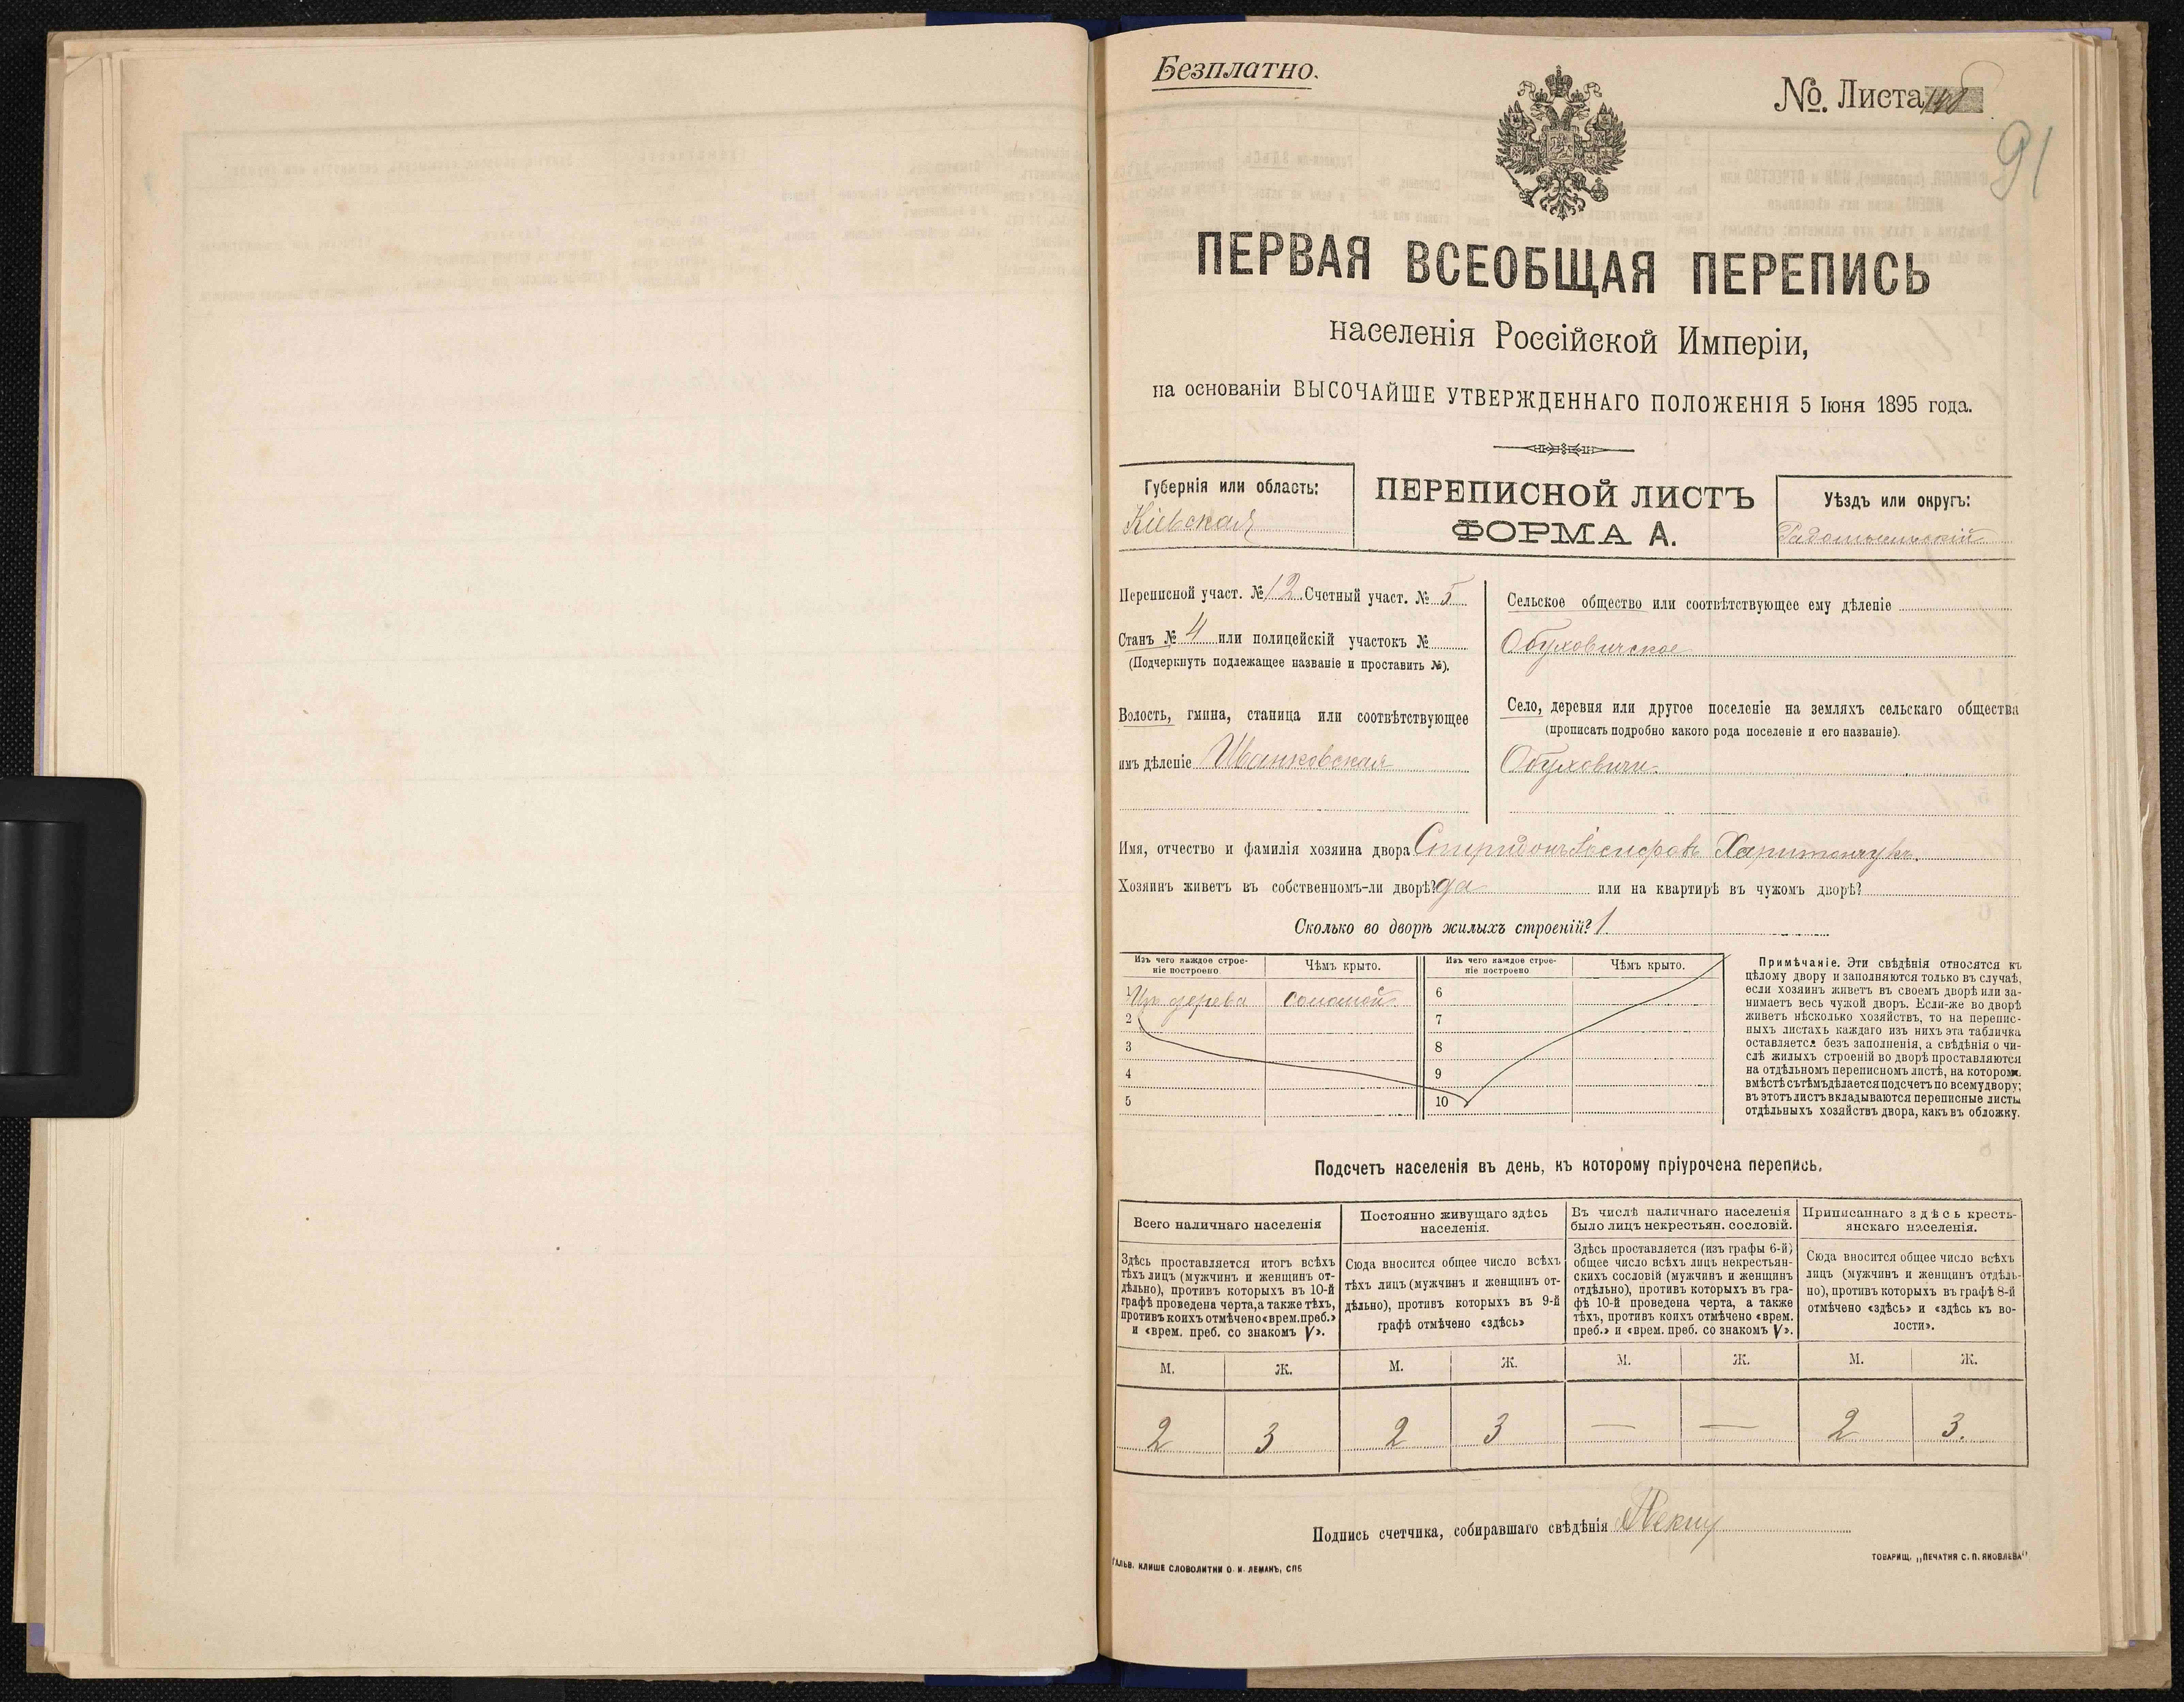 Безплатно.
№. Листа 148
91
ПЕРВАЯ ВСЕОБЩАЯ ПЕРЕПИСЬ
населенія Россійской Имперіи,
на основаніи ВЫСОЧАЙШЕ УТВЕРЖДЕННАГО ПОЛОЖЕНІЯ 5 Іюня 1895 года.
Губернія или область:
Кіевская
ПЕРЕПИСНОЙ ЛИСТЪ
ФОРМА А.
Уѣздъ или округъ:
Радомысльскій
Переписной участ. № 12. Счетный участ. № 5
Станъ № 4 или полицейскій участокъ №
(Подчеркнуть подлежащее названіе и проставить №).
Волость, гмина, станица или соотвѣтствующее
имъ дѣленіе Иванковская
Сельское общество или соотвѣтствующее ему дѣленіе
Обуховичское
Село, деревня или другое поселеніе на земляхъ сельскаго общества
(прописать подробно какого рода поселеніе и его названіе).
Обуховичи.
Имя, отчество и фамилія хозяина двора Спиридонъ Харитончукъ.
Хозяинъ живетъ въ собственномъ-ли дворѣ? да или на квартирѣ въ чужомъ дворѣ?
Сколько во дворѣ жилыхъ строеній? 1.
Изъ чего каждое строе-
ніе построено
Чѣмъ крыто.
Изъ чего каждое строе-
ніе построено
Чѣмъ крыто.
1 Изъ дерева соломой 6
2 7
3 8
4 9
5 10
Примѣчаніе. Эти свѣдѣнія относятся къ
цѣлому двору и заполняются только въ случаѣ,
если хозяинъ живетъ въ своемъ дворѣ или за-
нимаетъ весь чужой дворъ. Если-же во дворѣ
живетъ нѣсколько хозяйствъ, то на перепис-
ныхъ листахъ каждаго изъ нихъ эта табличка
оставляется безъ заполненія, а свѣдѣнія о чи-
слѣ жилыхъ строеній во дворѣ проставляются
на отдѣльномъ переписномъ листѣ, на которомъ
вмѣстѣ съ тѣмъ дѣлается подсчетъ по всему двору;
въ этотъ листъ вкладываются переписные листы
отдѣльныхъ хозяйствъ двора, какъ въ обложку.
Подсчетъ населенія въ день, къ которому пріурочена перепись.
Всего наличнаго населенія
Здѣсь проставляется итогъ всѣхъ
тѣхъ лицъ (мужчинъ и женщинъ от-
дѣльно), противъ которыхъ въ 10-й
графѣ проведена черта, а также тѣхъ,
противъ коихъ отмѣчено «врем. преб.»
и «врем. преб. со знакомъ V».
Постоянно живущаго здѣсь
населенія.
Сюда вносится общее число всѣхъ
тѣхъ лицъ (мужчинъ и женщинъ от-
дѣльно), противъ которыхъ въ 9-й
графѣ отмѣчено «здѣсь»
Въ числѣ наличнаго населенія
было лицъ некрестьян. сословій.
Здѣсь проставляется (изъ графы 6-й)
общее число всѣхъ лицъ некрестьян-
скихъ сословій (мужчинъ и женщинъ
отдѣльно), противъ которыхъ въ гра-
фѣ 10-й проведена черта, а также
тѣхъ, противъ коихъ отмѣчено «врем.
преб.» и «врем. преб. со знакомъ V».
Приписаннаго здѣсь кресть-
янскаго населенія.
Сюда вносится общее число всѣхъ
лицъ (мужчинъ и женщинъ отдѣль-
но), противъ которыхъ въ графѣ 8-й
отмѣчено «здѣсь» и «здѣсь къ во-
лости».
М. Ж. М. Ж. М. Ж. М. Ж.
2 3 2 3 — — 2 3.
Подпись счетчика, собиравшаго свѣдѣнія
ГАЛЬВ. КЛИШЕ СЛОВОЛИТНИ О. И. ЛЕМАНЪ, СПБ
ТОВАРИЩ. „ПЕЧАТНЯ С. П. ЯКОВЛЕВА"